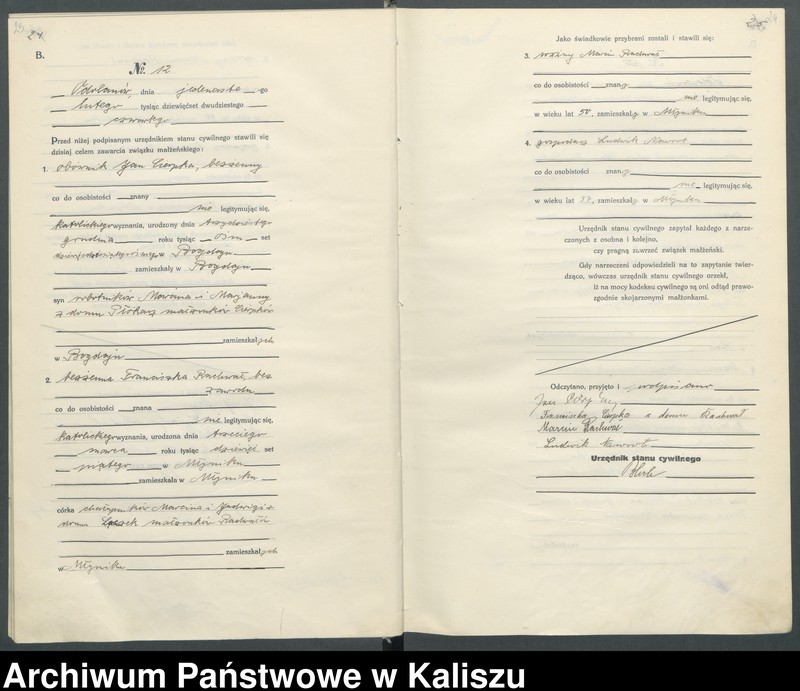 24
B.
№ 12
Odolanów, dnia jedenaste -go
lutego tysiąc dziewięćset dwudziestego
czwartego
Przed niżej podpisanym urzędnikiem stanu cywilnego stawili się
dzisiaj celem zawarcia związku małżeńskiego:
1. Jan Cierpka, bezżenny
co do osobistości znany
nie legitymując się,
katolickiego wyznania, urodzony dnia trzydziestego
grudnia roku tysiąc set
w Bogdaju
zamieszkały w Bogdaju
syn robotników i Marjanny
z domu małżonków Cierpków
zamieszkałych
w Bogdaju
2. bezżenna Franciszka Rachwał, bez
zawodu
co do osobistości znana
nie legitymując się,
katolickiego wyznania, urodzona dnia trzeciego
marca roku tysiąc dziewięć set
piątego w Młyniku
zamieszkała w Młyniku
córka chałupników Marcina i Jadwigi z
domu małżonków Rachwałów
zamieszkałych
w Młyniku
25
Jako świadkowie przybrani zostali i stawili się:
3. Marcin Rachwał
co do osobistości znany
nie legitymując się,
w wieku lat 50, zamieszkały w Młyniku
4. gospodarz Ludwik Nawrot
co do osobistości znany
nie legitymując się,
w wieku lat zamieszkały w Młyniku
Urzędnik stanu cywilnego zapytał każdego z narze-
czonych z osobna i kolejno,
czy pragną zawrzeć związek małżeński.
Gdy narzeczeni odpowiedzieli na to zapytanie twier-
dząco, wówczas urzędnik stanu cywilnego orzekł,
iż na mocy kodeksu cywilnego są oni odtąd prawo-
zgodnie skojarzonymi małżonkami.
Odczytano, przyjęto i podpisano
Jan
Franciszka z domu Rachwał
Marcin Rachwał
Ludwik Nawrot
Urzędnik stanu cywilnego
Archiwum Państwowe w Kaliszu